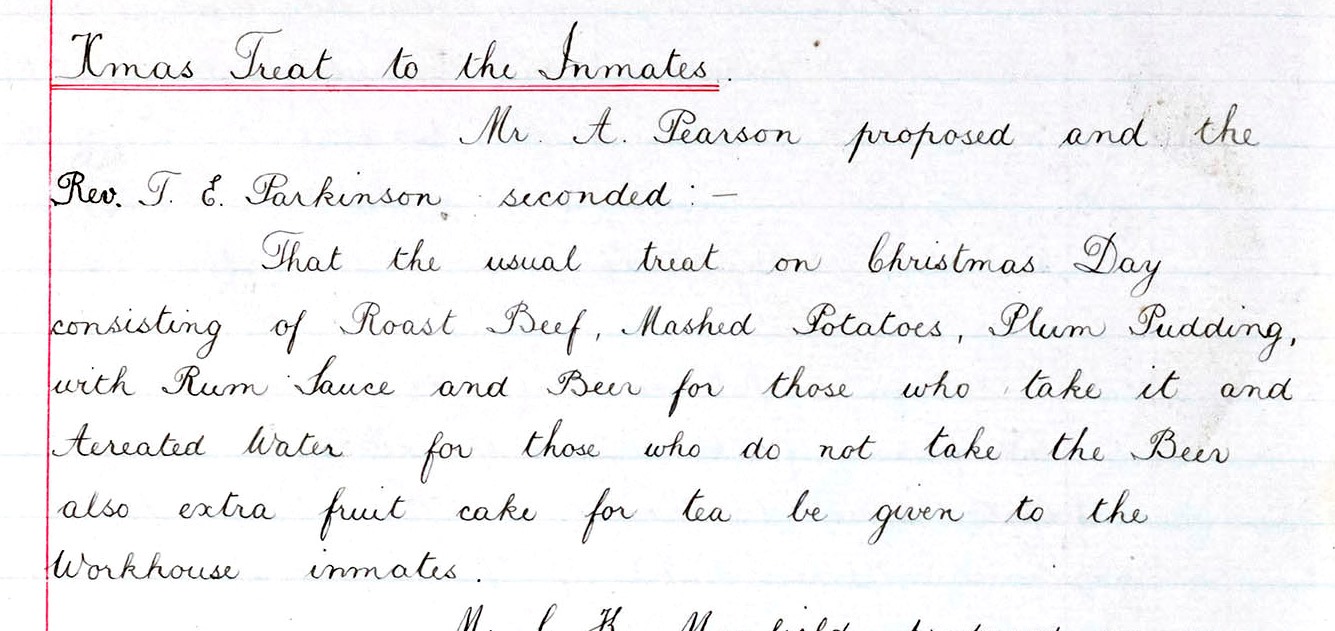 Xmas Treat to the Inmates.
Mr. A. Pearson proposed and the
Rev. T. E. Parkinson seconded :—
That the usual treat on Christmas Day
consisting of Roast Beef, Mashed Potatoes, Plum Pudding,
with Rum Sauce and Beer for those who take it and
Aereated Water for those who do not take the Beer
also extra fruit cake for tea be given to the
Workhouse inmates.